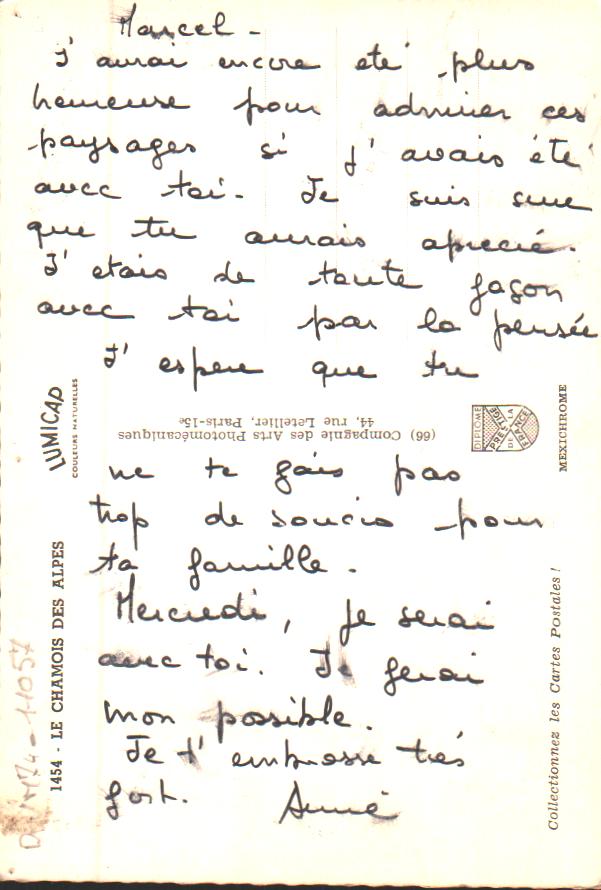 Marcel -
J'aurai encore été plus
heureuse pour admirer ces
paysages si j'avais été
avec toi. Je suis sure
que tu aurais aprecié.
J'etais de toute façon
avec toi par la pensée
J'espere que tu
LUMICAP
COULEURS NATURELLES
(66) Compagnie des Arts Photomécaniques
44, rue Letellier, Paris-15e
DIPLOME
PRESTIGE
DE LA
FRANCE
MEXICHROME
ne te fais pas
trop de soucis pour
ta famille.
Mercredi, je serai
avec toi. Je ferai
mon possible.
Je t'embrasse très
fort.
1454 - LE CHAMOIS DES ALPES
Collectionnez les Cartes Postales !